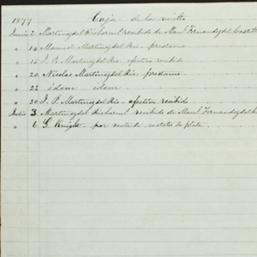 1877 Caja de la mina
Junio 2 Martinez del Rio herms. recibido de Manl. Fernandez del Castillo
" 14 Manuel Martinez del Rio - prestamo
" 15 J. P. Martinez del Rio efectivo recibido
" 20 Nicolas Martinez del Rio prestamo
" 22 idem idem
" 30 J. P. Martinez del Rio - efectivo recibido
Julio 3 Martinez del Rio herms. recibido de Manl. Fernandez del
" 6 G. Knight por venta de de plata